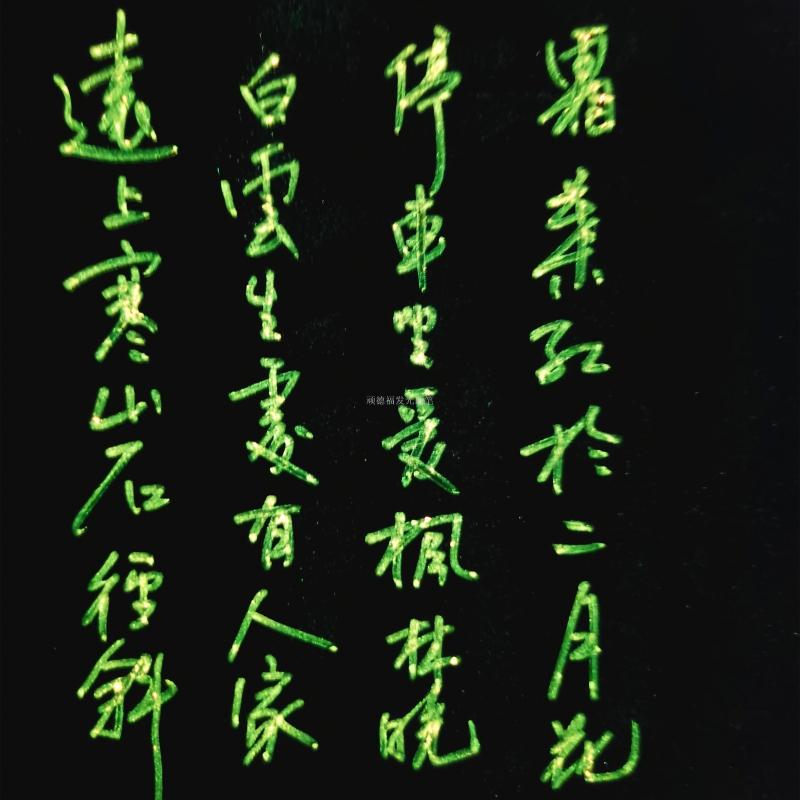 遠上寒山石徑斜
白雲生處有人家
停車坐愛楓林晚
霜葉紅於二月花
顽德福发光